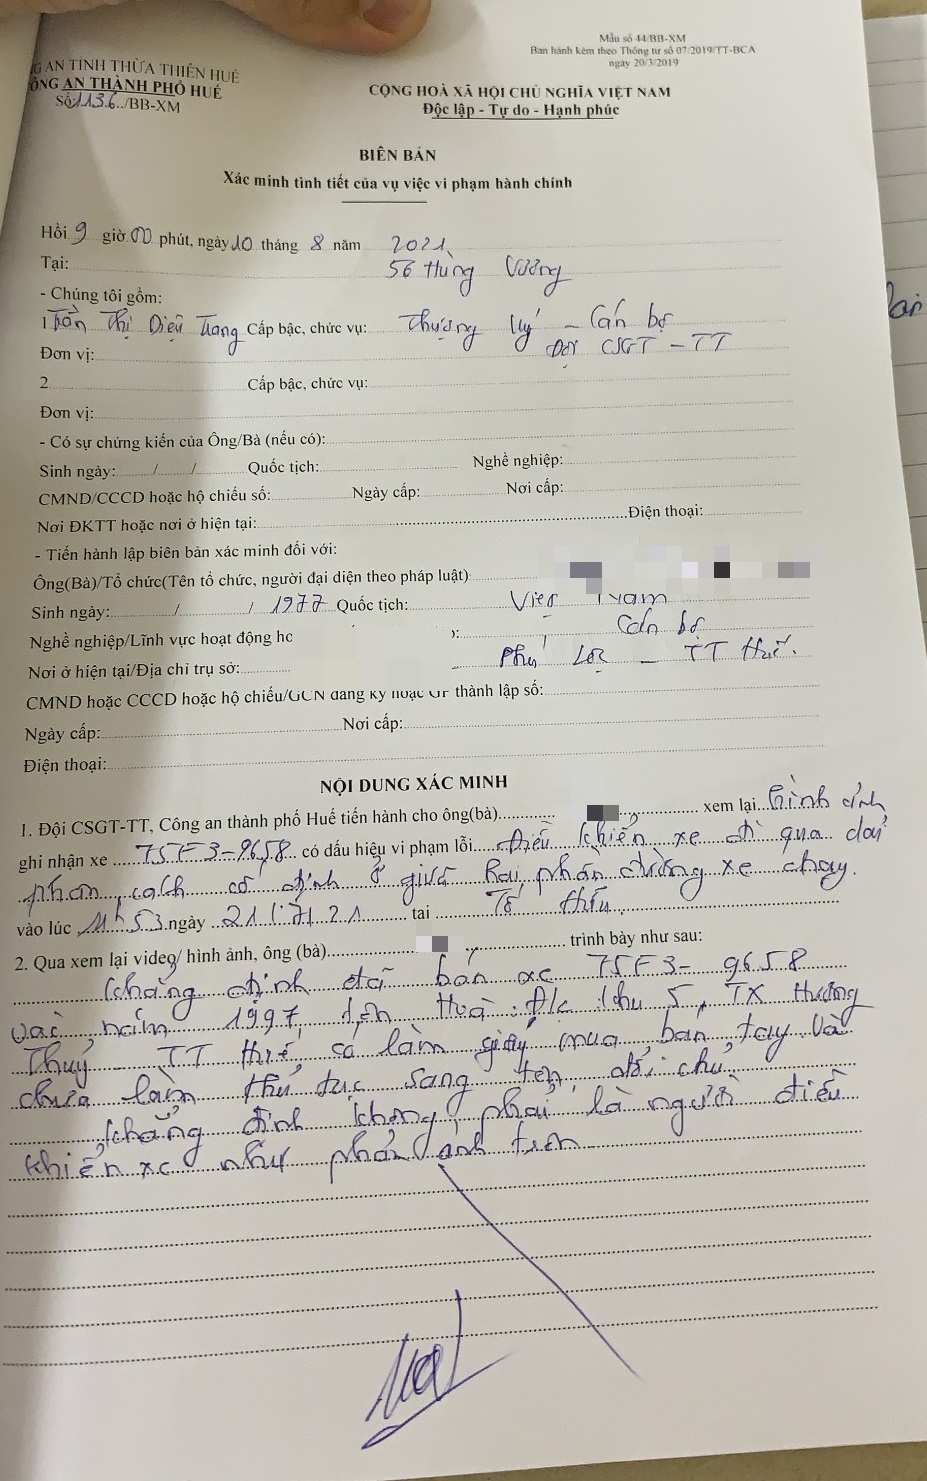 Mẫu số 44/BB-XM
Ban hành kèm theo Thông tư số 07/2019/TT-BCA
ngày 20/3/2019
G AN TỈNH THỪA THIÊN HUẾ
ÔNG AN THÀNH PHỐ HUẾ
Số 1136../BB-XM
CỘNG HOÀ XÃ HỘI CHỦ NGHĨA VIỆT NAM
Độc lập - Tự do - Hạnh phúc
BIÊN BẢN
Xác minh tình tiết của vụ việc vi phạm hành chính
Hồi 9 giờ 00 phút, ngày 10 tháng 8 năm 2021
Tại: 56 Hùng Vương
- Chúng tôi gồm:
1 Trần Thị Diệu Trang Cấp bậc, chức vụ: Thượng uý - Cán bộ
Đơn vị: Đội CSGT - TT
2 Cấp bậc, chức vụ:
Đơn vị:
- Có sự chứng kiến của Ông/Bà (nếu có):
Sinh ngày: / / Quốc tịch: Nghề nghiệp:
CMND/CCCD hoặc hộ chiếu số: Ngày cấp: Nơi cấp:
Nơi ĐKTT hoặc nơi ở hiện tại: Điện thoại:
- Tiến hành lập biên bản xác minh đối với:
Ông(Bà)/Tổ chức(Tên tổ chức, người đại diện theo pháp luật)
Sinh ngày: / / 1977 Quốc tịch: Việt Nam
Nghề nghiệp/Lĩnh vực hoạt động hc ): Cán bộ
Nơi ở hiện tại/Địa chỉ trụ sở: Phú Lộc - TT Huế.
CMND hoặc CCCD hoặc hộ chiếu/GCN đăng ký hoặc GP thành lập số:
Ngày cấp: Nơi cấp:
Điện thoại:
NỘI DUNG XÁC MINH
1. Đội CSGT-TT, Công an thành phố Huế tiến hành cho ông(bà) xem lại hình ảnh
ghi nhận xe 75F3-9658 có dấu hiệu vi phạm lỗi Điều khiển xe đi qua dải
phân cách cố định ở giữa hai phần đường xe chạy.
vào lúc 11h53 ngày 21/7/21 tại Tố Hữu
2. Qua xem lại video/ hình ảnh, ông (bà) trình bày như sau:
Khẳng định đã bán xe 75F3-9658
vào năm 1997, Hoà, Đ/c khu 5, TX Hương
Thuỷ - TT Huế, có làm giấy mua bán tay và
chưa làm thủ tục sang tên, đổi chủ,
khẳng định không phải là người điều
khiển xe như phản ảnh trên